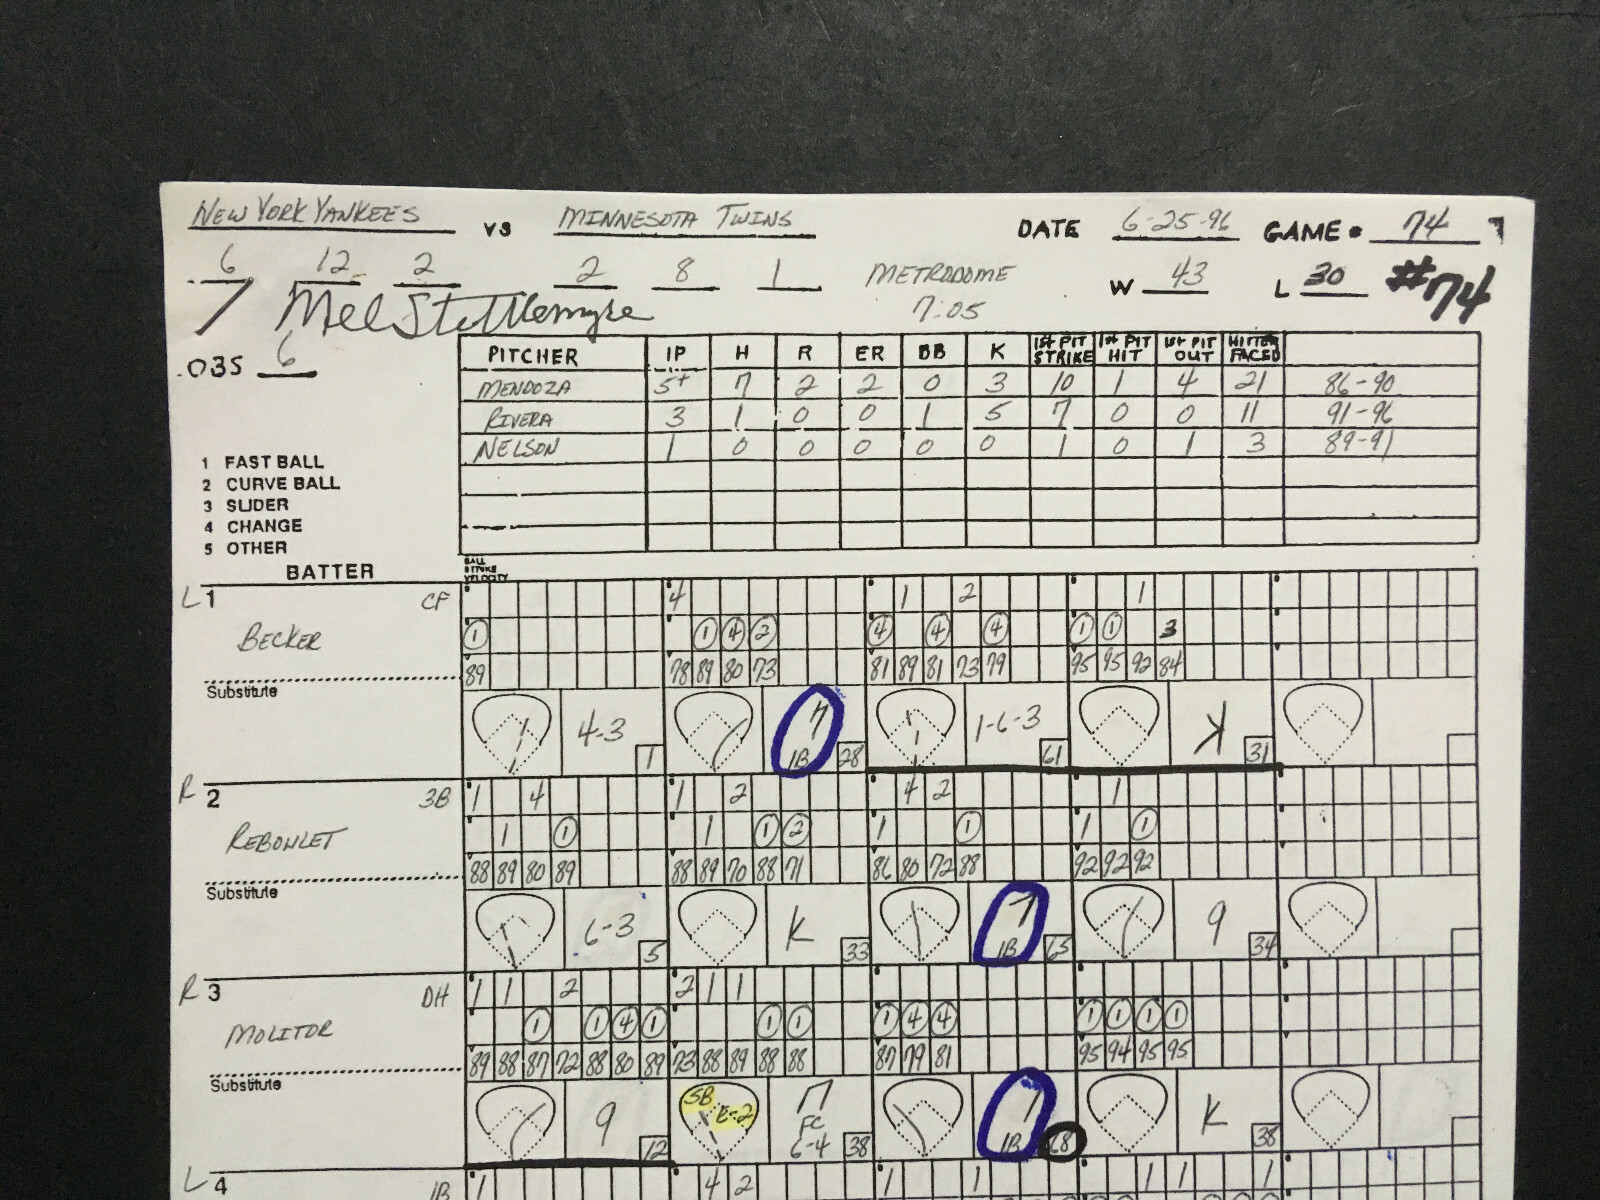 NEW YORK YANKEES VS MINNESOTA TWINS DATE 6-25-96 GAME # 74
6 12 2 2 8 1 METRODOME W 43 L 30 #74
Mel Stottlemyre 7:05
OBS 6
PITCHER IP H R ER BB K 1st PIT STRIKE 1st PIT HIT 1st PIT OUT HITTER FACED
MENDOZA 5+ 7 2 2 0 3 10 1 4 21 86-90
RIVERA 3 1 0 0 1 5 7 0 0 11 91-96
NELSON 1 0 0 0 0 0 1 0 1 3 89-91
1 FAST BALL
2 CURVE BALL
3 SLIDER
4 CHANGE
5 OTHER
BATTER BALL STRIKE VELOCITY
L 1 CF 4 1 2 1
BECKER 1 1 4 2 4 4 4 1 1 3
89 78 89 80 73 81 89 81 73 79 95 95 92 84
Substitute
4-3 1 7 1B 28 1-6-3 61 K 31
R 2 3B 1 4 1 2 4 2 1
REBOULET 1 1 1 1 2 1 1 1 1
88 89 80 89 88 89 70 88 71 86 80 72 88 92 92 92
Substitute
6-3 5 K 33 7 1B 65 9 34
R 3 DH 1 1 2 2 1 1
MOLITOR 1 1 4 1 1 1 1 4 4 1 1 1 1
89 88 87 72 88 80 89 73 88 89 88 88 87 79 81 95 94 95 95
Substitute
9 12 SB E-2 FC 6-4 38 7 1B 68 K 38
L 4 1B 1 4 2 1 1 1 1 1